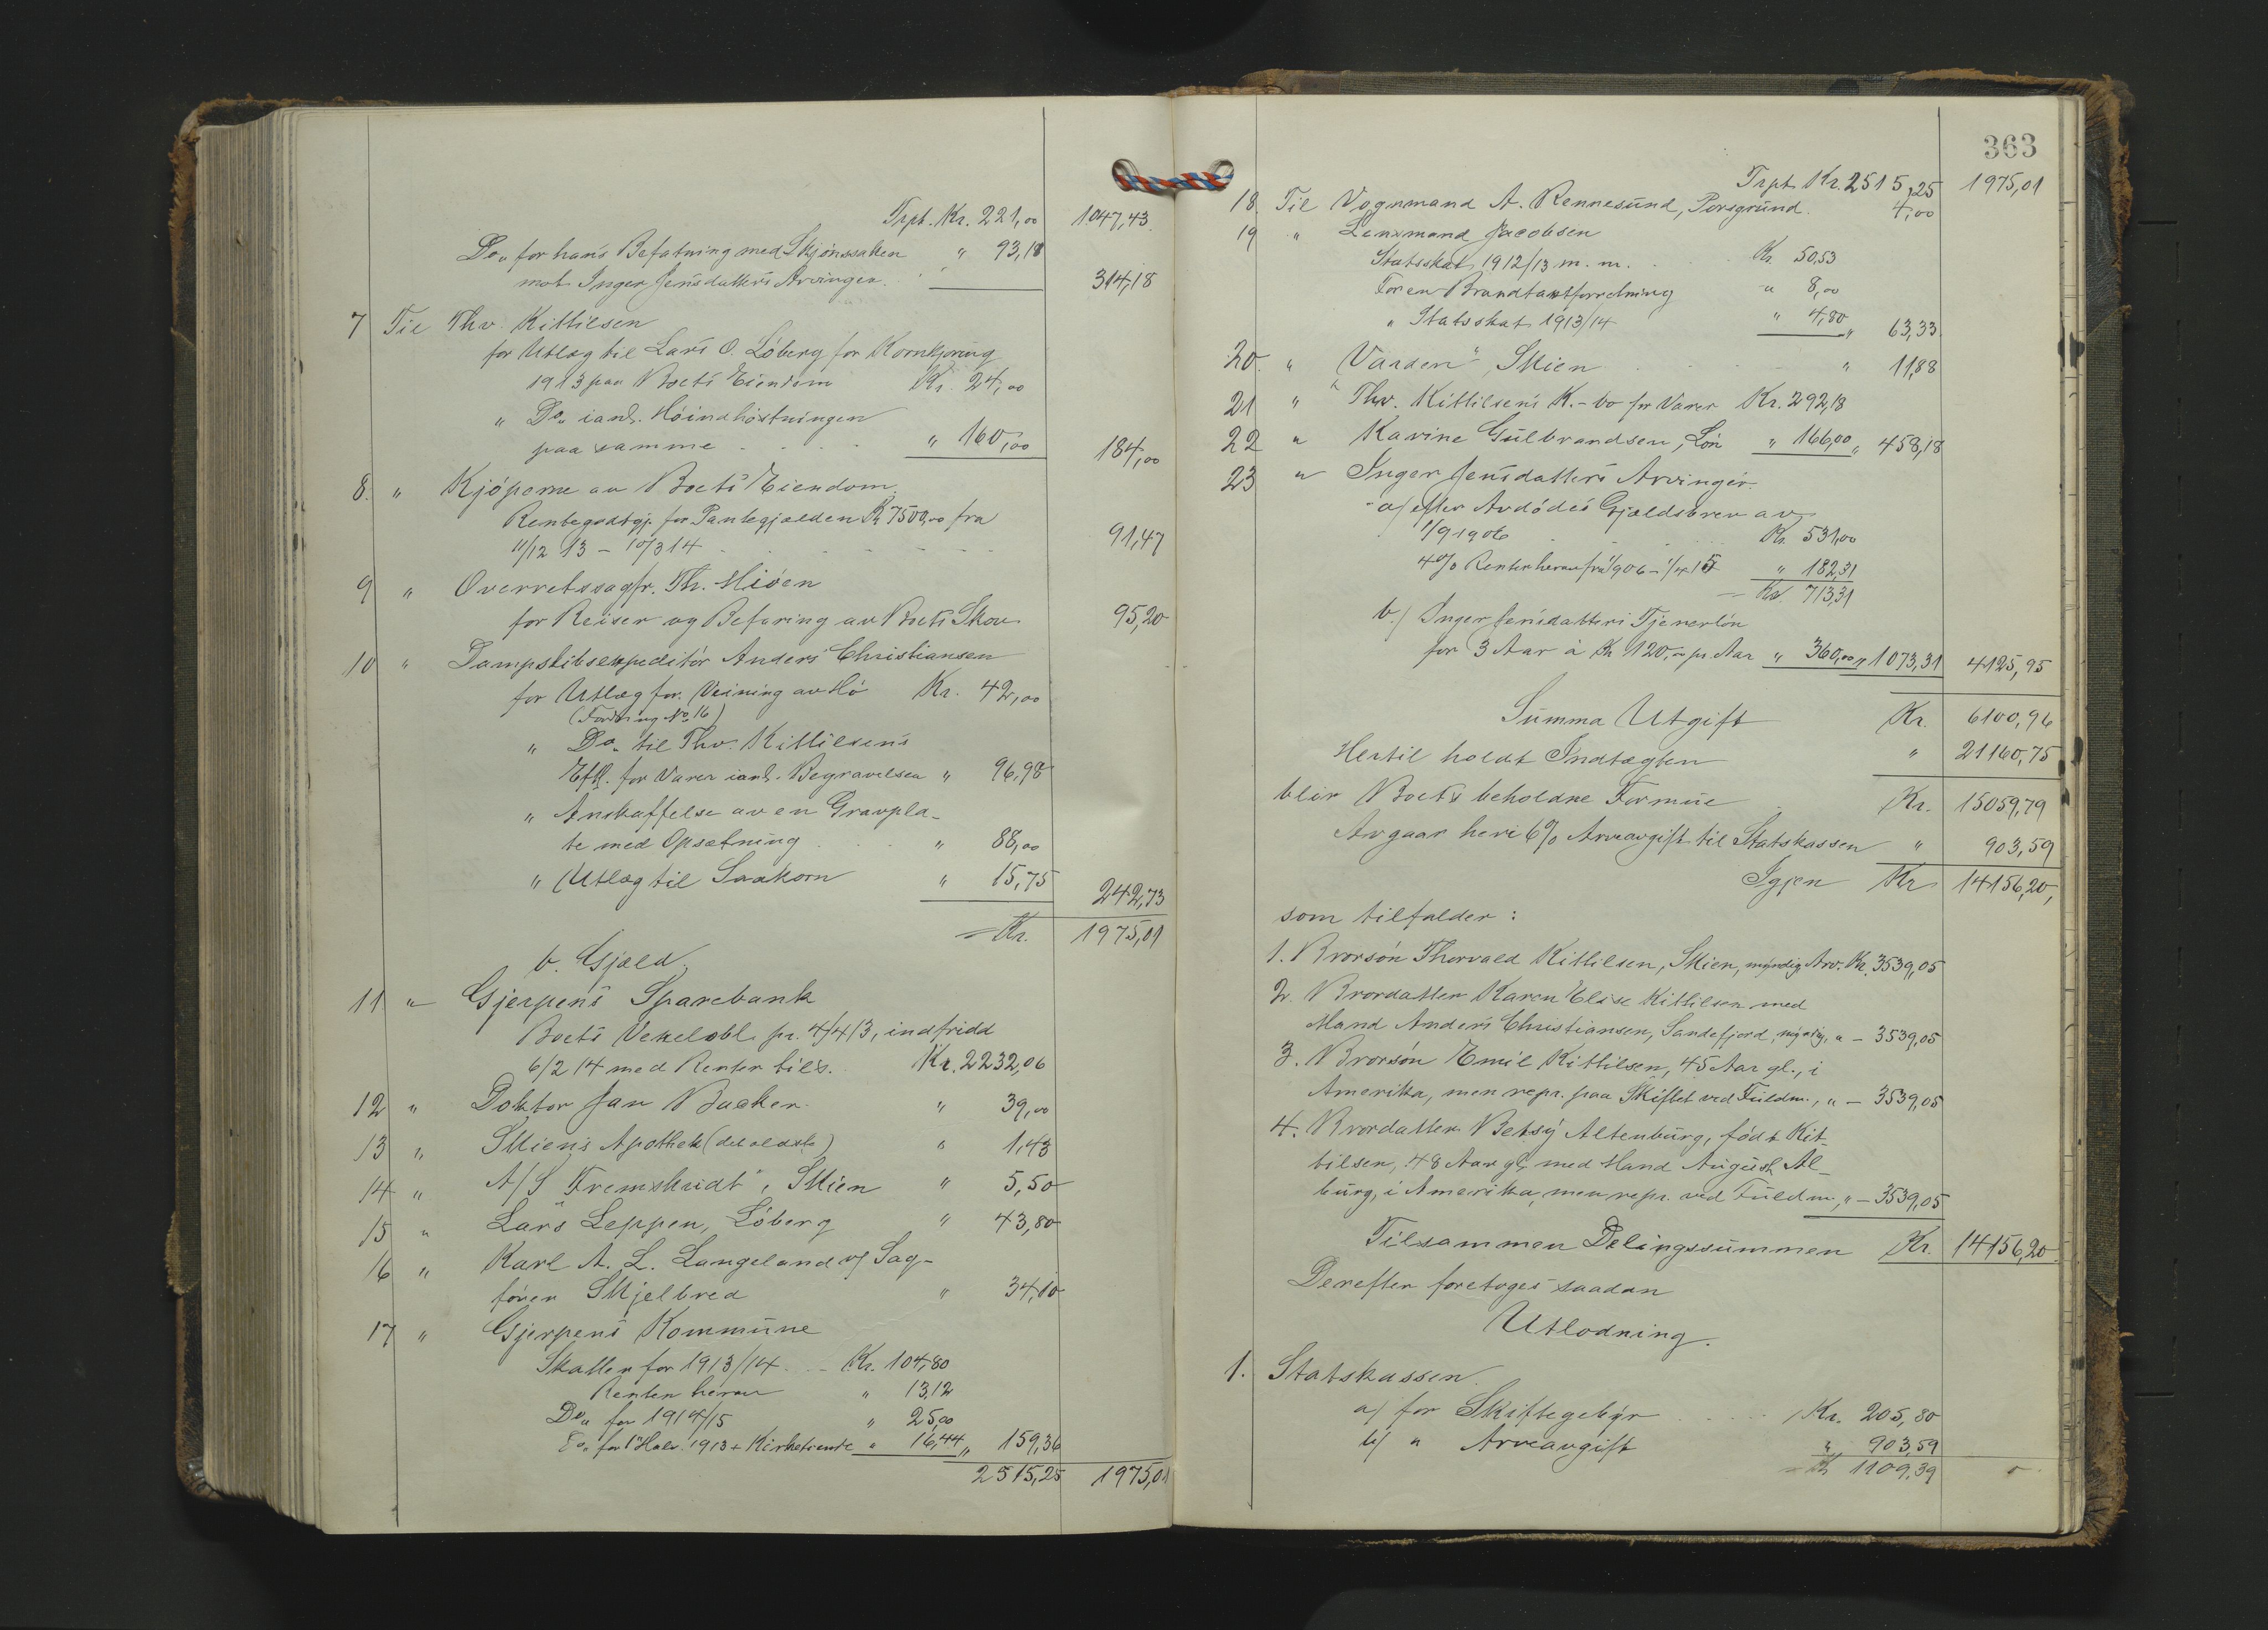 Trpt. Kr. 221,00 1047,43
Do„ for hans Befatning med Skjønssaken " 93,18
mot Inger Jensdatters Arvinger. 314,18
7 Til Thv. Kittilsen
for Utlæg til Lars O. Løberg for Kornkjøring
1913 paa Boets Eiendom Kr. 24,00
" Do„ ianl. Høiindhøstningen
paa samme " 160,00 184,00
8. " Kjøperne av Boets Eiendom
Rentegodtgj. for Pantegjælden Kr 7500,00 fra
11/12 13 - 10/3 14 91,47
9 " Overretssagfr. Th. Miøen
for Reiser og Befaring av Boets Skov 95,20
10 " Dampskibsexpeditør Anders Christiansen
for Utlæg for Veining av Hø Kr. 42,00
(Fordring No 16)
" Do„ til Thv. Kittilsens
Eftf. for Varer ianl. Begravelsen " 96,98
" Anskaffelse av en Gravpla-
te med Opsætning " 88,00
" Utlæg til Saakorn " 15,75 242,73
= Kr. 1975,01
b. Gjæld.
11 " Gjerpens Sparebank
Boets Vexelobl. pr. 4/4 13, indfridd
6/2 14 med Renter tils. Kr. 2232,06
12 " Doktor Jan Backer " 39,00
13 " Skiens Apothek (det ældste) " 1,43
14 " A/S "Fremskridt", Skien " 5,50
15 " Lars Leppen, Løberg " 43,80
16 " Karl A. L. Langeland v/ Sag-
fører Skjelbred " 34,10
17 " Gjerpens Kommune
Skatten for 1913/14 Kr. 104,80
Renten herav " 13,12
Do„ for 1914/15 " 25,00
Do„ for 1' Halv. 1913 + Kirketiende " 16,44 " 159,36
2515,25 1975,01
363
Trpt. Kr. 2515,25 1975,01
18. Til Vognmand A. Rennesund, Porsgrund. 4,00
19 " Lensmand Jacobsen
Statsskat 1912/13 m. m. Kr. 50,53
For en Brandtakstforretning " 8,00
" Statsskat 1913/14 " 4,80 " 63,33
20. " "Varden", Skien " 11,88
21 " Thv. Kittilsens K.-bo for Varer Kr. 292,18
22 " Karine Gulbrandsen, Løn " 166,00 " 458,18
23 " Inger Jensdatters Arvinger
a/ efter Avdødes Gjældsbrev av
1/9 1906 Kr. 531,00
4% Renter herav fra 1/9 06 - 1/4 15 " 182,31
= Kr. 713,31
b./ Inger Jensdatters Tjenerløn
for 3 Aar à Kr 120,00 pr. Aar " 360,00 " 1073,31 4125,95
Summa Utgift Kr. 6100,96
Hertil holdt Indtægten " 21160,75
blir Boets beholdne Formue Kr. 15059,79
Avgaar heri 6% Arveavgift til Statskassen " 903,59
Igjen Kr 14156,20,
som tilfalder:
1. Brorsøn Thorvald Kittilsen, Skien, myndig Arv. Kr. 3539,05
2. Brordatter Karen Elise Kittilsen med
Mand Anders Christiansen, Sandefjord, myndig, " - 3539,05
3. Brorsøn Emil Kittilsen, 45 Aar gl., i
Amerika, men repr. paa Skiftet ved Fuldm., " - 3539,05
4. Brordatter Betsy Altenburg, født Kit-
tilsen, 48 Aar gl, med Mand August Al-
burg, i Amerika, men repr. ved Fuldm., " - 3539,05
Tilsammen Delingssummen Kr. 14156,20
Derefter foretoges saadan
Utlodning.
1. Statskassen
a/ for Skiftegebyr Kr. 205,80
b/ " Arveavgift " 903,59
= Kr 1109,39